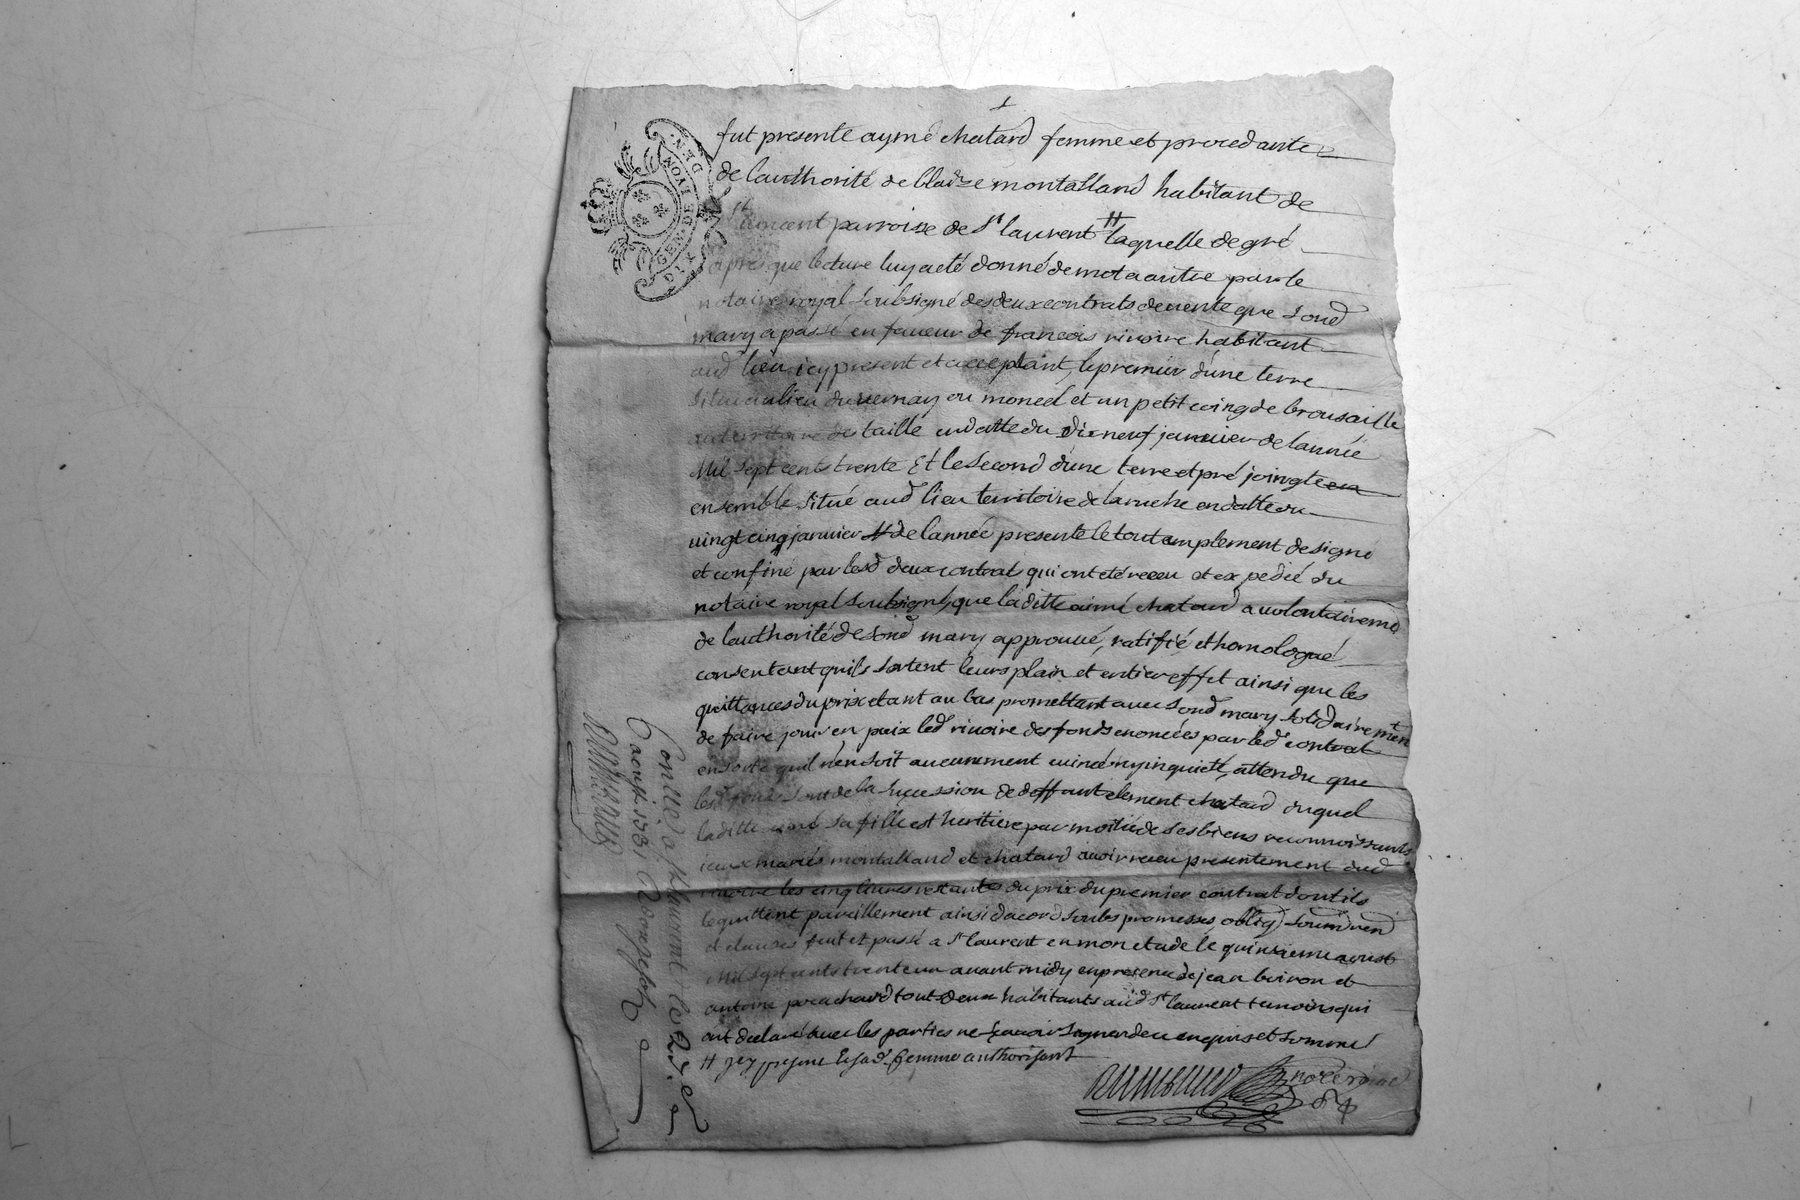 fut presente aymé chatard femme et procedante
de lauthorité de blaize montalland habitant de
parroisse de St laurent # laquelle de gré
apres que lecture luy a eté donné de mot a autre par le
notaire royal soubsigné des deux contrats de vente que sond
mary a passé en faveur de francois rivoire habitant
aud lieu icy present et acceptant, le premier d'une terre
situé au lieu du vernay ou moncel et un petit coing de brousaille
au territoire de taille en datte du dixneuf janvier de lannée
Mil sept cents trente Et le second d'une terre et pré joingte
ensemble situé aud lieu territoire de la ruche en datte du
vingt cinq janvier de lannée presente le tout amplement designé
et confiné par lesd deux contrats qui ont eté receu et expedié du
notaire royal soubsigné, que laditte aimé chatard a volontairemt
de lauthorité de sond mary approuvé, ratifié et homologué
consentant quils sortent leurs plain et entier effet ainsi que les
quittances du prix etant au bas promettant avec sond mary solidairement
de faire jouir en paix led rivoire des fonds enoncées par led contrat
en sorte quil n'en soit aucunement evincé ny inquieté, attendu que
lesd fonds sont de la succession de deffunt clement chatard duquel
laditte aimé sa fille est heritiere par moitié de ses biens reconnoissants
iceux mariés montalland et chatard avoir receu presentement dud
rivoire les cinq livres restantes du prix du premier contrat dont ils
le quittent pareillement ainsi dacord soubs promesses, oblig) soum) ren)
et clauses fait et passé a St laurent en mon etude le quinzieme aoust
Mil sept cents trente un avant midy en presence de jean boiron et
antoine habitants aud St laurent temoins qui
ont declaré avec les parties ne scavoir signer de ce enquis et sommé
# icy present Et sad. femme authorisant
notre royal
GEN. DE LYON